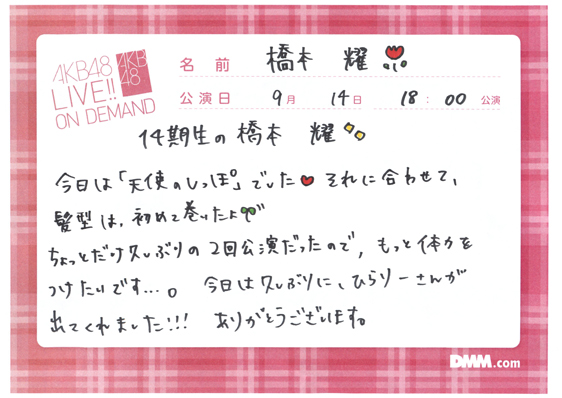 AKB48
LIVE!!
ON DEMAND
AKB
48
名前 橋本 耀
公演日 9月 14日 18:00 公演
14期生の橋本 耀
今日は「天使のしっぽ」でした それに合わせて、
髪型は、初めて巻いたよ
ちょっとだけ久しぶりの2回公演だったので、もっと体力を
つけたいです...。 今日は久しぶりに、ひらりーさんが
出てくれました!!! ありがとうございます。
DMM.com